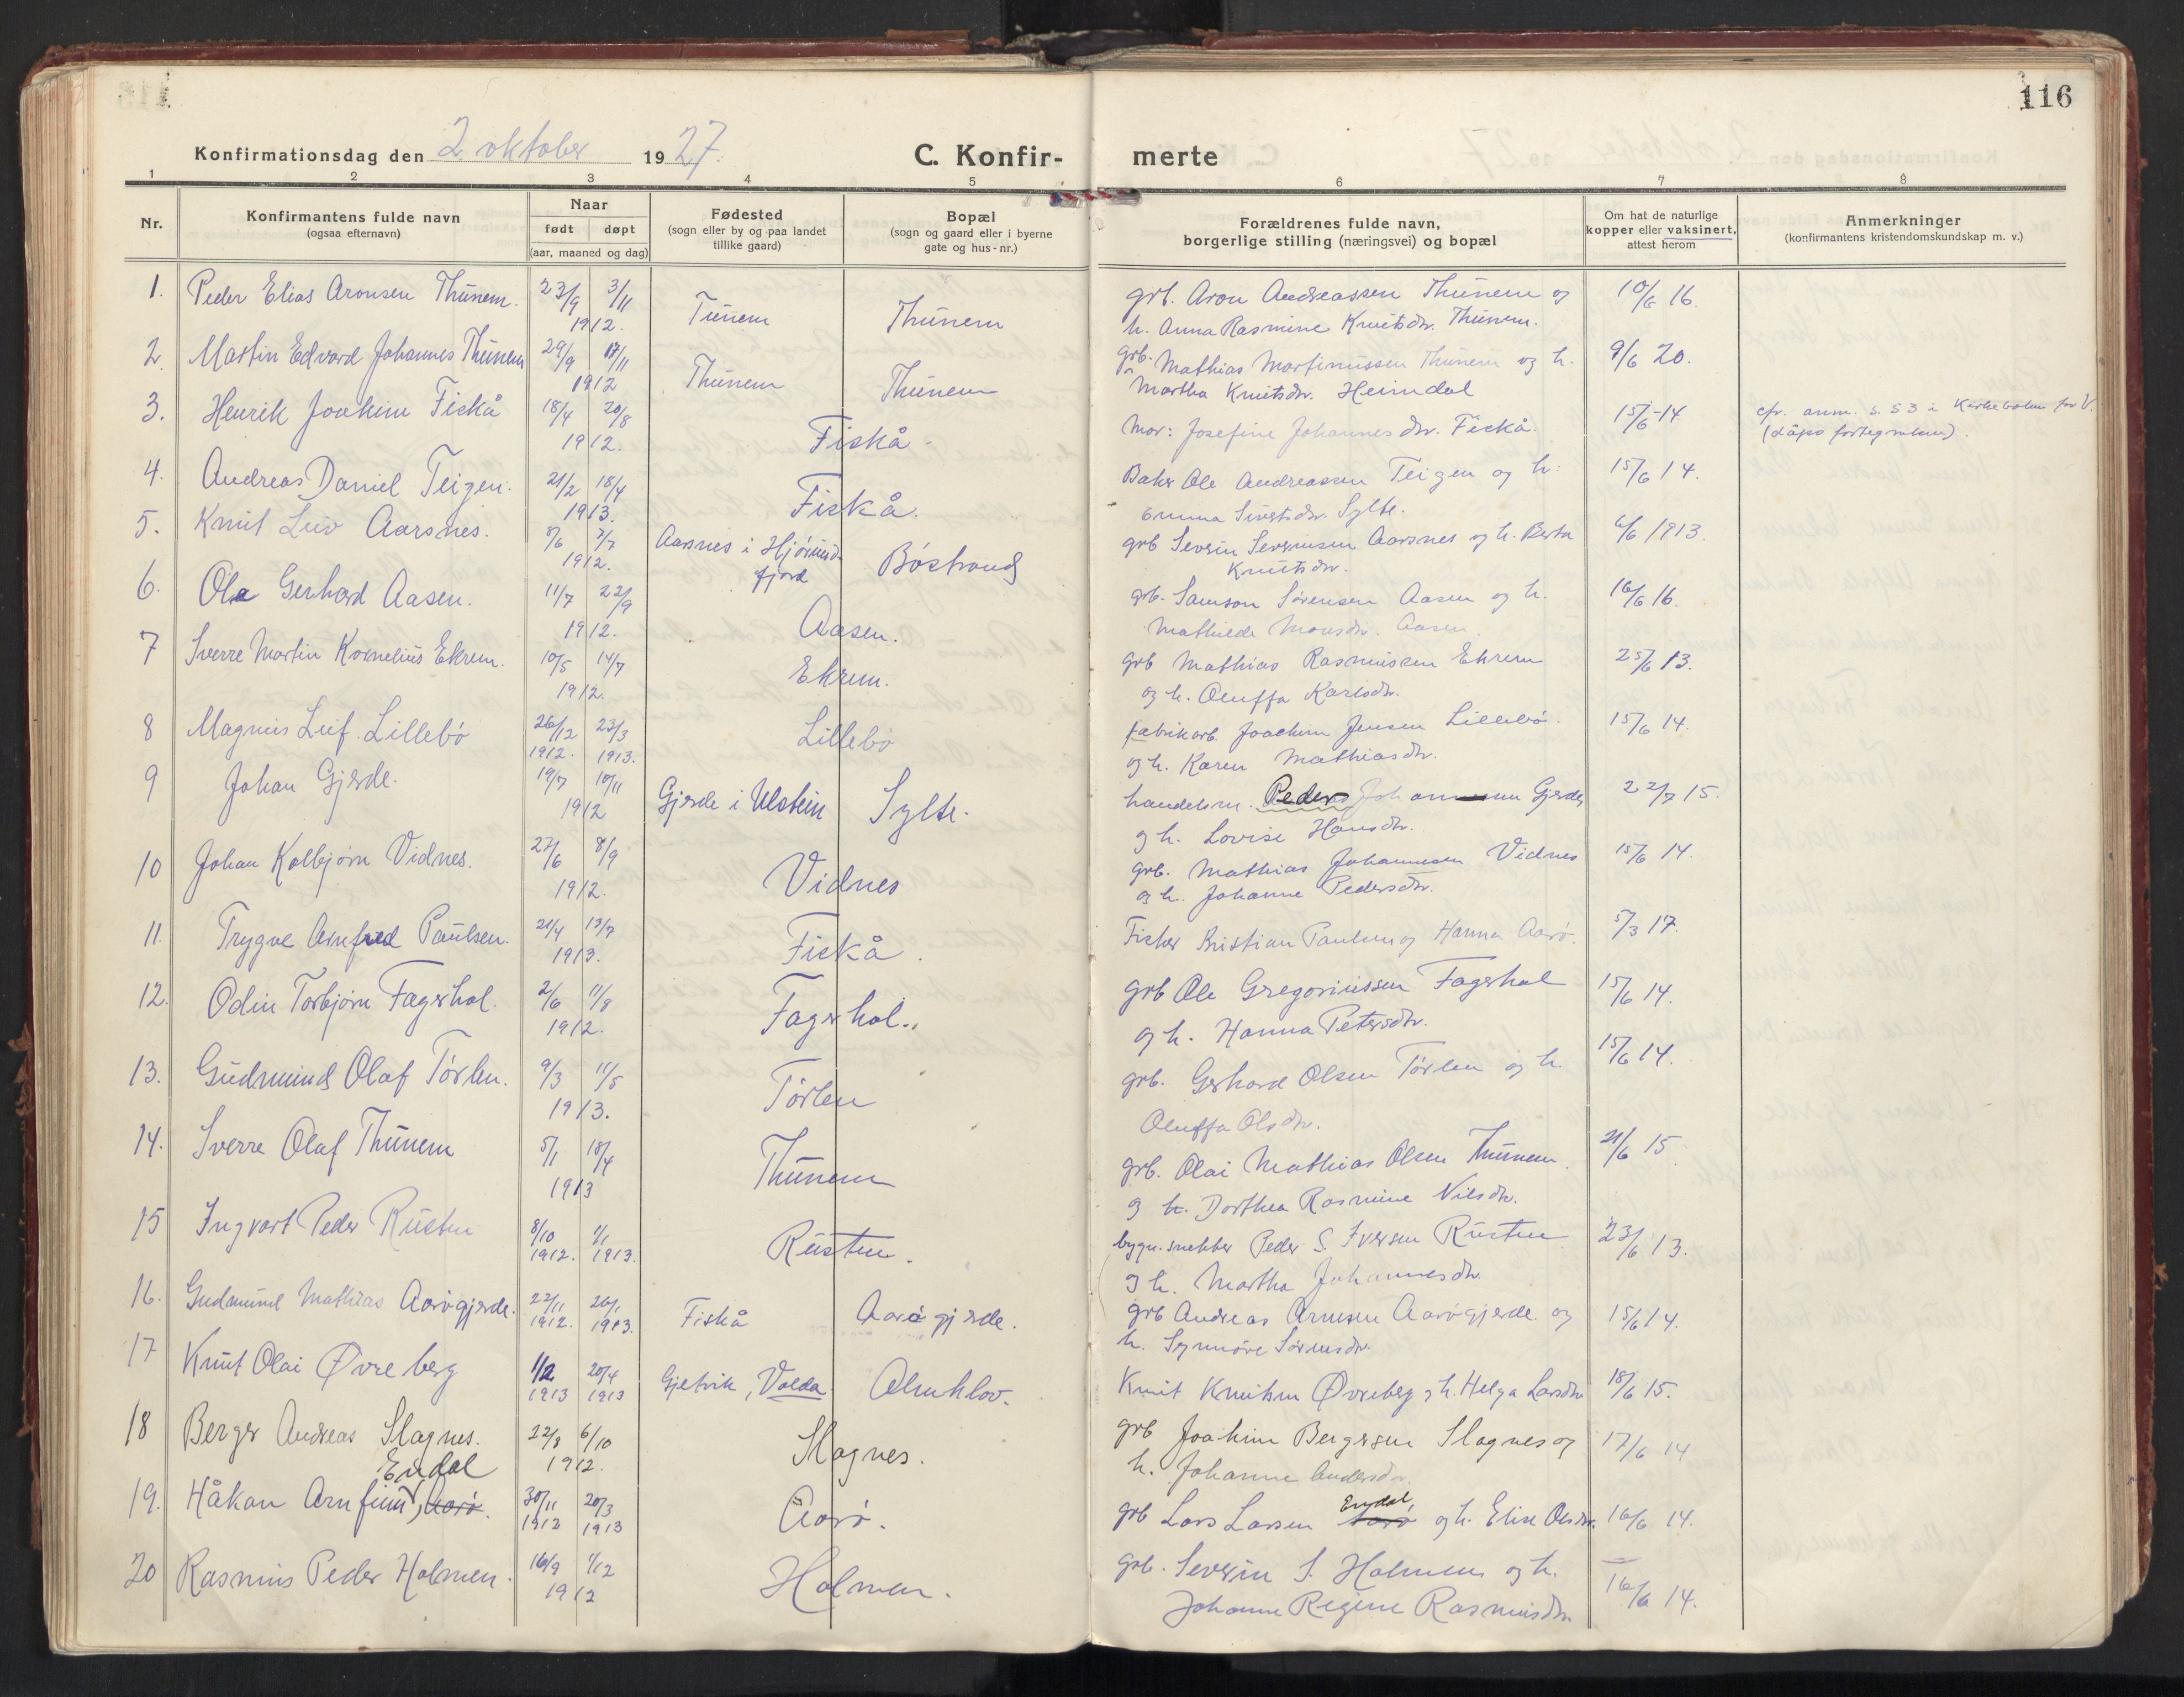 116
Konfirmationsdag den 2 oktober 1927.
C. Konfir-
merte
1 2 3 4 5 6 7 8
Nr.
Konfirmantens fulde navn
(ogsaa efternavn)
Naar
født døpt
(aar, maaned og dag)
Fødested
(sogn eller by og paa landet
tillike gaard)
Bopæl
(sogn og gaard eller i byerne
gate og hus-nr.)
Forældrenes fulde navn,
borgerlige stilling (næringsvei) og bopæl
Om hat de naturlige
kopper eller vaksinert,
attest herom
Anmerkninger
(konfirmantens kristendomskundskap m. v.)
1. Peder Elias Aronsen Thunem. 23/9 3/11 1912. Tunem Thunem
grb. Aron Andreassen Thunem og
h. Anna Rasmine Knutsdtr. Thunem. 10/6 16.
2. Martin Edvard Johannes Thunem 29/9 17/11 1912 Thunem Thunem
grb. Mathias Martinussen Thunem og h.
Martha Knutsdtr. Heimdal 9/6 20.
3. Henrik Joakim Fiskå 18/4 20/8 1912. Fiskå
Mor: Josefine Johannesdtr. Fiskå. 15/6-14
cfr. anm. s. 53 i Kirkeboken for V.
(dåps fortegnelsen).
4. Andreas Daniel Teigen. 21/2 18/4 1913. Fiskå.
Baker Ole Andreassen Teigen og h:
Emma Sivertsdtr. Sylte. 15/6 14.
5. Knut Leiv Aarsnes. 5/6 7/7 1912. Aarsnes i Hjørund-
fjord Böstrand
grb Severin Severinsen Aarsnes og h. Berta
Knutsdtr. 6/6 1913.
6. Ola Gerhard Aasen. 11/7 22/9 1912. Aasen.
grb. Samson Sørensen Aasen og h.
Mathilde Monsdtr. Aasen. 16/6 16.
7 Sverre Martin Kornelius Ekrem. 10/5 14/7 1912. Ekrem.
grb Mathias Rasmussen Ekrem
og h. Oluffa Karlsdtr. 25/6 13.
8 Magnus Leif Lillebö 26/12 1912. 23/3 1913. Lillebö
fabrikarb. Joachim Jensen Lillebö.
og h. Karen Mathiasdtr. 15/6 14.
9 Johan Gjerde. 19/7 10/11 1912 Gjerde i Ulstein Sylte.
handelsm. Peder Johannesen Gjerde
og h. Lovise Hansdtr. 22/7 15.
10 Johan Kolbjørn Vidnes. 27/6 8/9 1912. Vidnes
grb. Mathias Johannesen Vidnes
og h. Johanne Pedersdtr. 15/6 14.
11. Trygve Arnfred Paulsen. 21/4 13/7 1913. Fiskå.
Fisker Kristian Paulsen og Hanna Aarö. 5/3 17.
12. Odin Torbjørn Fagerhol. 2/6 11/8 1912. Fagerhol.
grb Ole Gregoriussen Fagerhol
og h. Hanna Petersdtr. 15/6 14.
13. Gudmund Olaf Törlen. 9/3 11/5 1913. Törlen
grb. Gerhard Olsen Törlen og h.
Oluffa Olsdtr. 15/6 14.
14. Sverre Olaf Thunem 5/1 18/4 1913 Thunem
grb. Olai Mathias Olsen Thunem.
og h. Dorthea Rasmine Nilsdtr. 21/6 15.
15 Ingvart Peder Rusten 8/10 1912. 1/1 1913. Rusten.
bygn.snekker Peder S. Iversen Rusten
og h. Martha Johannesdtr. 23/6 13.
16. Gudmund Mathias Aarögjerde. 22/11 1912. 26/1 1913. Fiskå Aarögjerde.
grb Andreas Arnesen Aarögjerde og
h. Synnöve Sörensdtr. 15/6 14.
17 Knut Olai Øvreberg 1/2 1913 20/4 1913 Gjetvik, Volda Almklov.
Knut Knutsen Øvreberg og h. Helga Larsdtr 18/6 15.
18 Berger Andreas Slagnes. 22/8 6/10 1912. Slagnes.
grb Joakim Bergersen Slagnes og
h. Johanne Andersdtr. 17/6 14
19. Håkon Arnfinn, Aarö. Endal 30/11 1912 20/3 1913 Aarö.
grb Lars Larsen Aarö Endal og h. Elise Olsdtr. 16/6 14.
20 Rasmus Peder Holmen. 16/9 1/12 1912 Holmen.
grb. Severin S. Holmen og h.
Johanne Regine Rasmusdtr. 16/6 14.